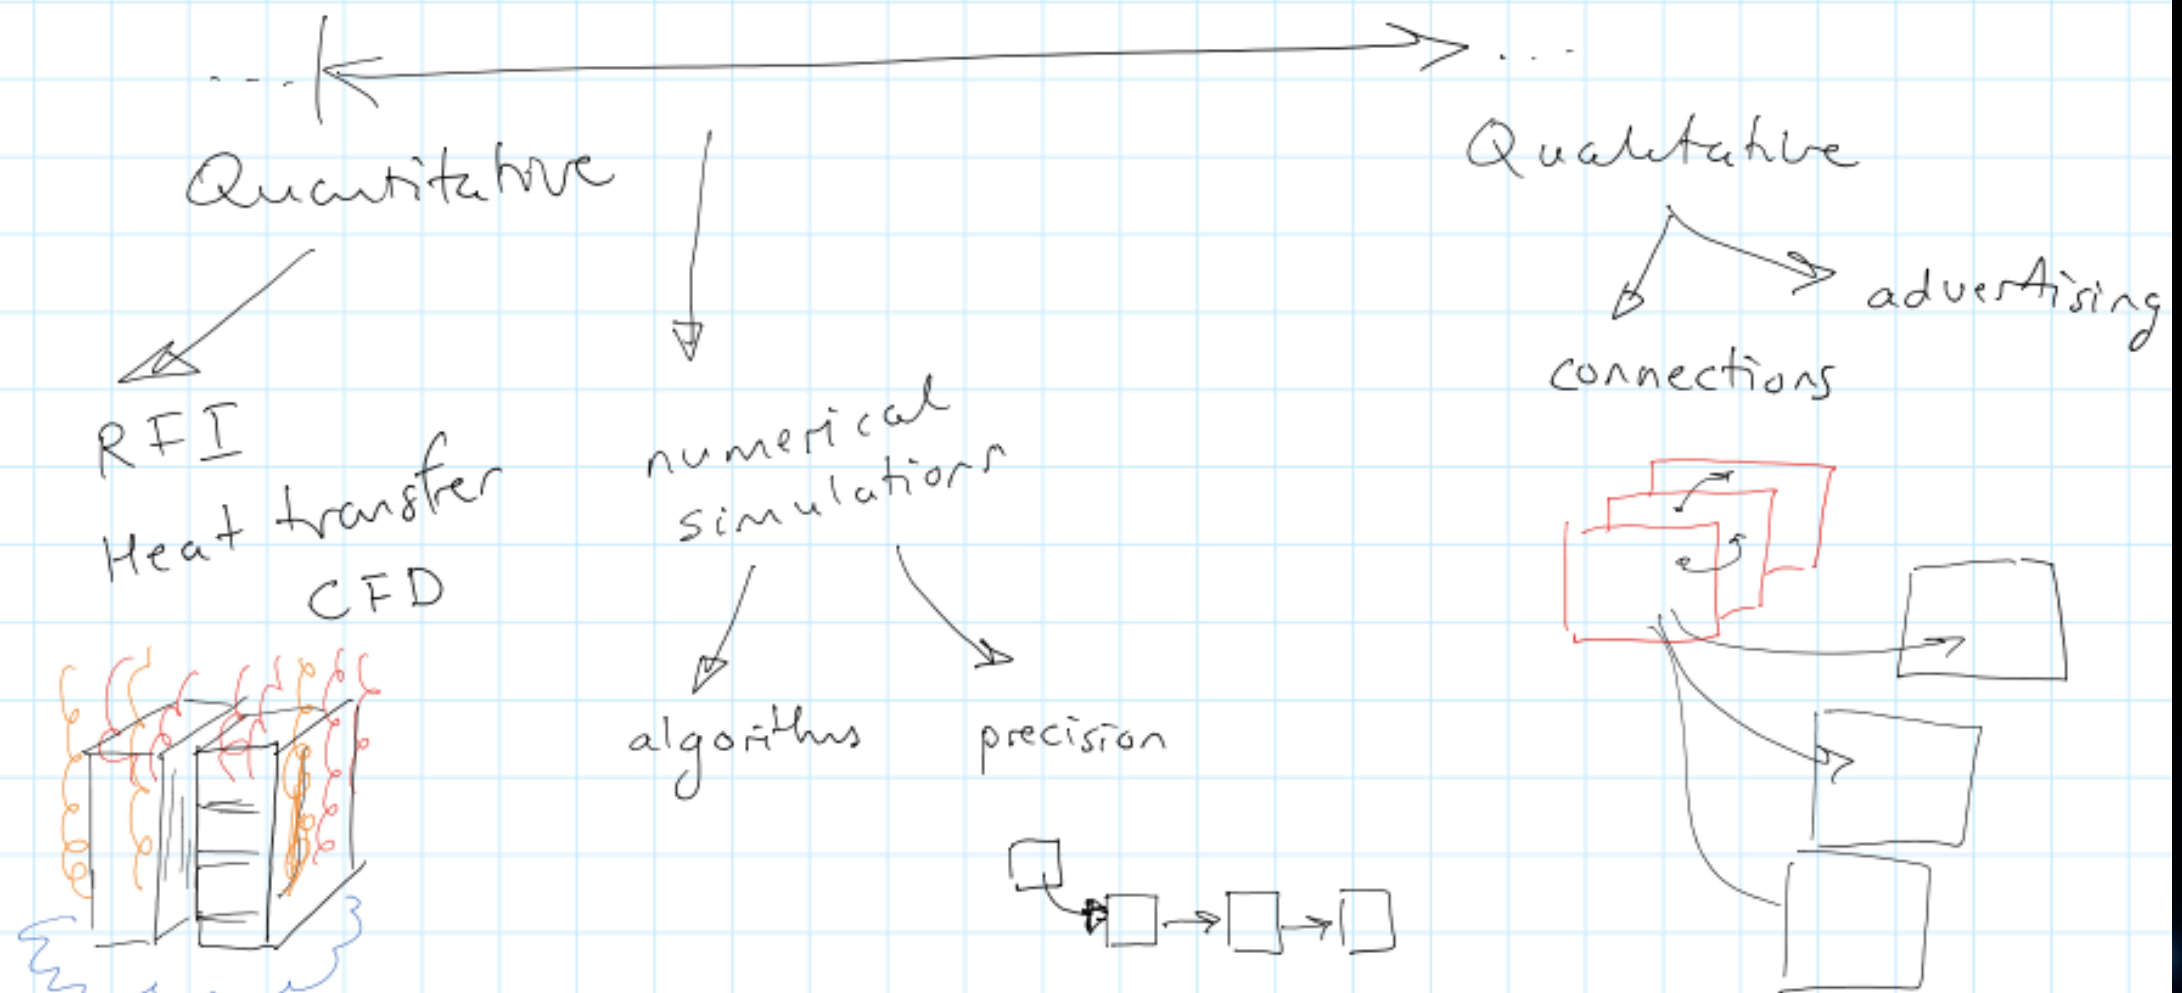 Quantitative
Qualitative
advertising
connections
RFI
Heat transfer
CFD
numerical
simulations
algorithms
precision